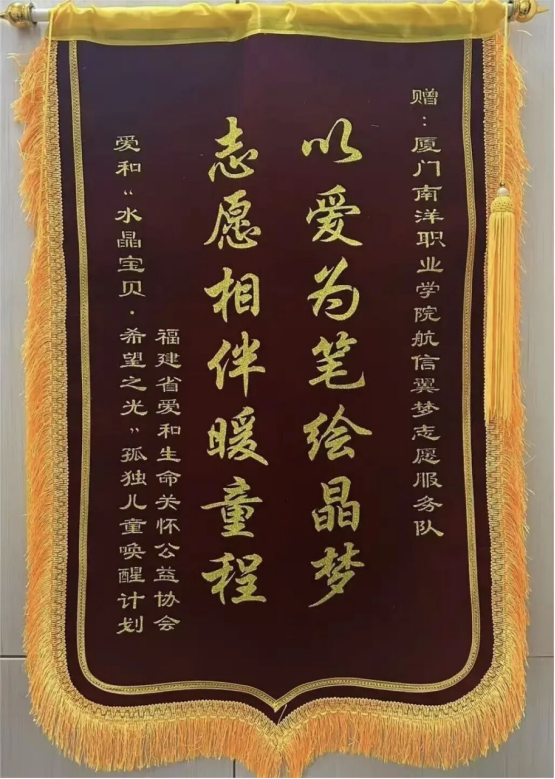 赠：厦门南洋职业学院航信翼梦志愿服务队
以爱为笔绘晶梦
志愿相伴暖童程
福建省爱和生命关怀公益协会
爱和“水晶宝贝·希望之光”孤独儿童唤醒计划